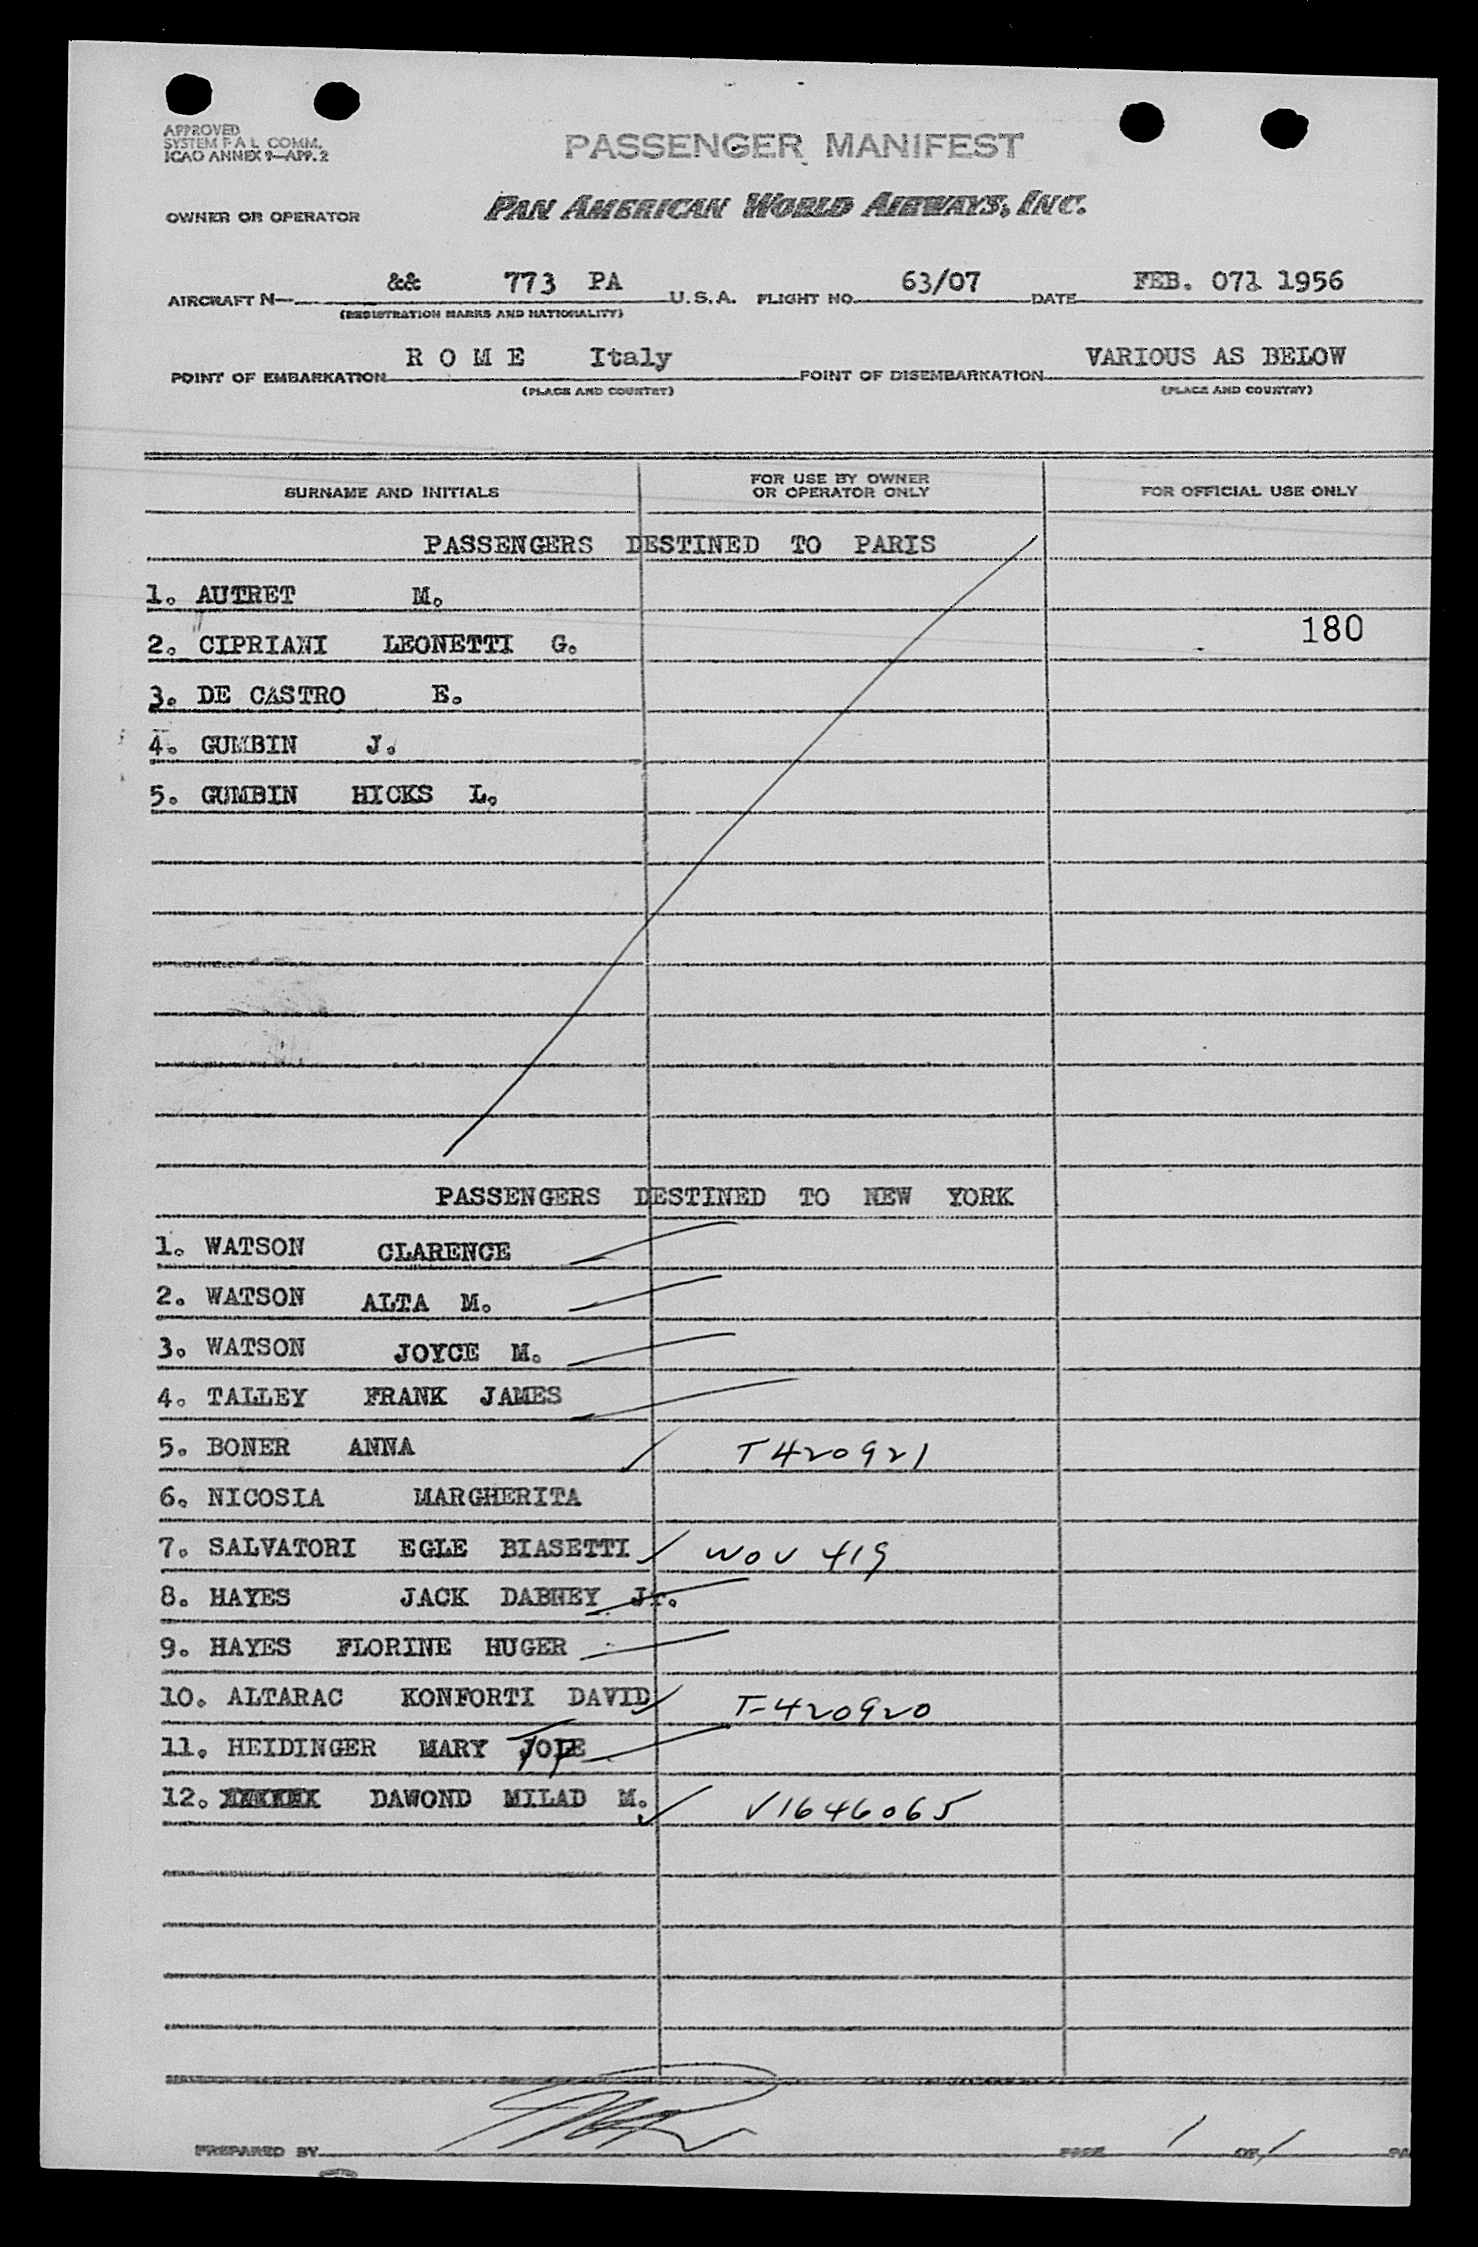 APPROVED
SYSTEM F A L COMM.
ICAO ANNEX 9—APP. 2
PASSENGER MANIFEST
OWNER OR OPERATOR PAN AMERICAN WORLD AIRWAYS, INC.
AIRCRAFT N— && 773 PA U.S.A. FLIGHT NO. 63/07 DATE FEB. 071 1956
(REGISTRATION MARKS AND NATIONALITY)
POINT OF EMBARKATION R O M E Italy POINT OF DISEMBARKATION VARIOUS AS BELOW
(PLACE AND COUNTRY) (PLACE AND COUNTRY)
SURNAME AND INITIALS FOR USE BY OWNER OR OPERATOR ONLY FOR OFFICIAL USE ONLY
PASSENGERS DESTINED TO PARIS
1. AUTRET M.
180
2. CIPRIANI LEONETTI G.
3. DE CASTRO E.
4. GUMBIN J.
5. GUMBIN HICKS L.
PASSENGERS DESTINED TO NEW YORK
1. WATSON CLARENCE
2. WATSON ALTA M.
3. WATSON JOYCE M.
4. TALLEY FRANK JAMES
5. BONER ANNA T420921
6. NICOSIA MARGHERITA
7. SALVATORI EGLE BIASETTI WOV 419
8. HAYES JACK DABNEY Jr.
9. HAYES FLORINE HUGER
10. ALTARAC KONFORTI DAVID T-420920
11. HEIDINGER MARY
12. DAWOND MILAD M. V1646065
PREPARED BY PAGE 1 OF 1 PA